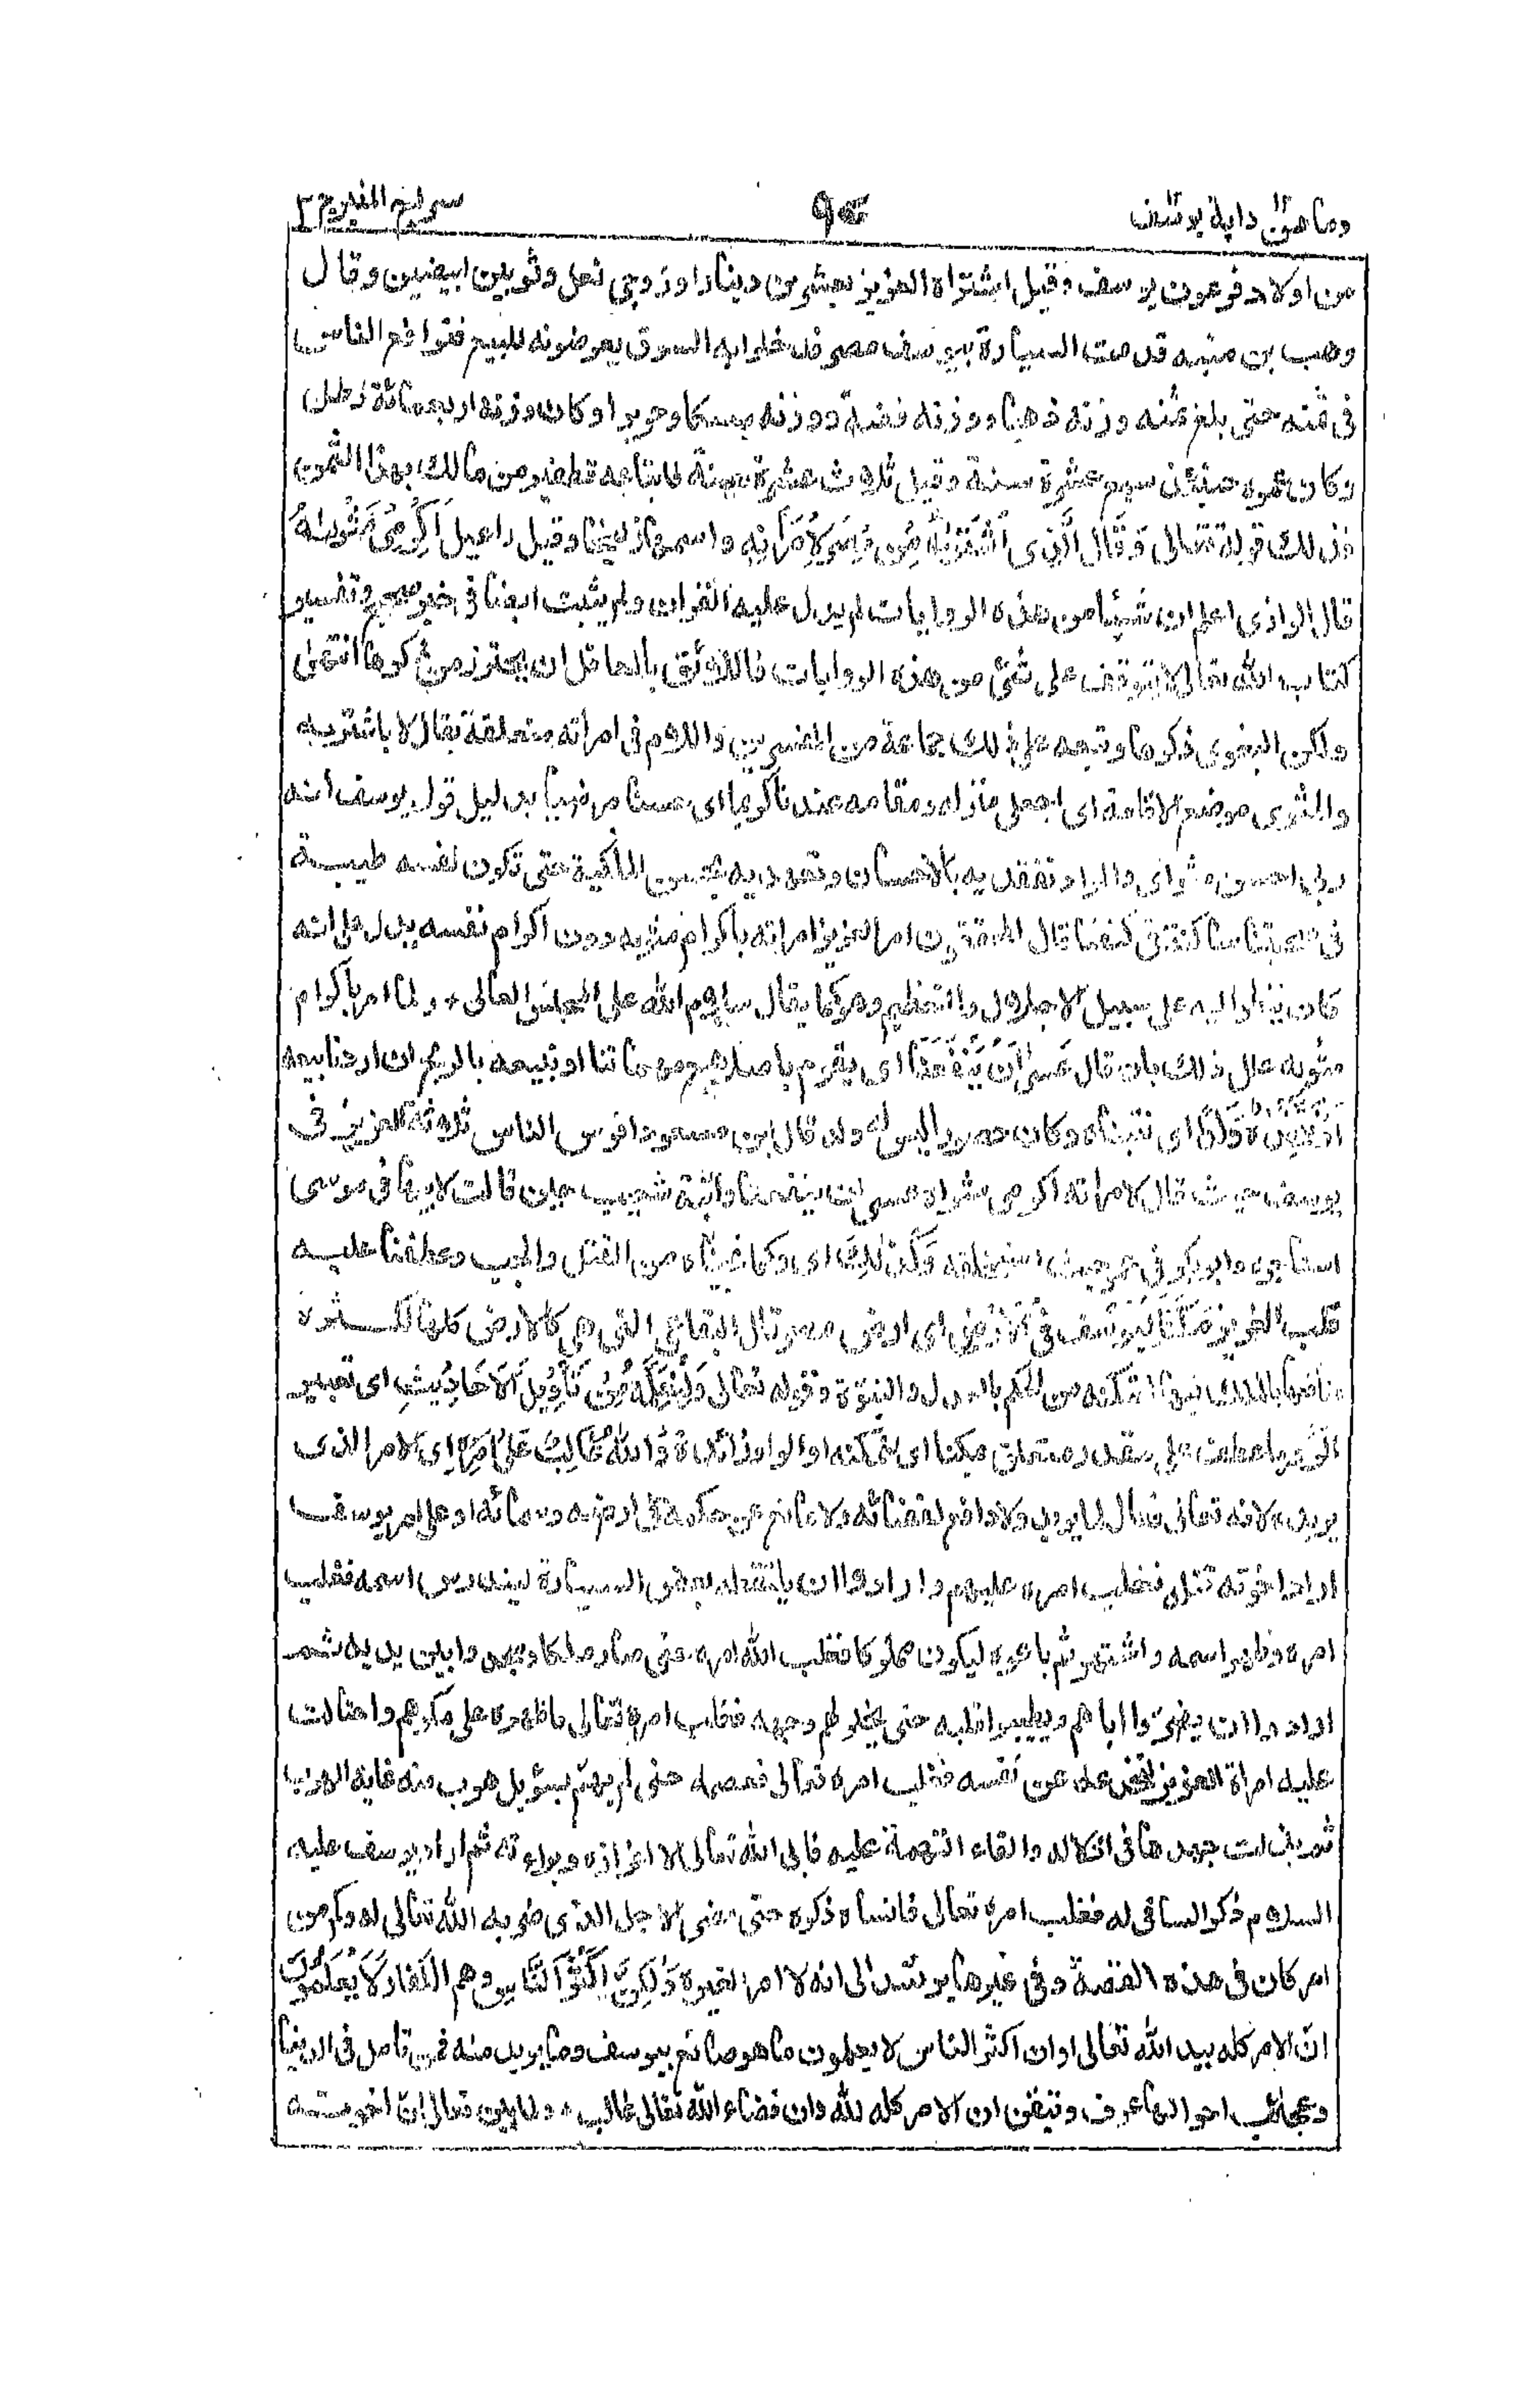 وما من دابة يوسف ٩٥ سراج المنير ج ٢
من اولاد فرعون يوسف وقيل اشتراه العزيز بعشرين دينارا وزوجى نعل وثوبين ابيضين وقال
وهب بن منبه قدمت السيارة بيوسف مصر فدخلوا به السوق يعرضونه للبيع فترافع الناس
فى ثمنه حتى بلغ ثمنه وزنه ذهبا ووزنه فضة ووزنه مسكا وحريرا وكان وزنه اربعمائة رطل
وكان عمره حينئذ سبع عشرة سنة وقيل ثلاث عشرة سنة فابتاعه قطفير من مالك بهذا الثمن
فذلك قوله تعالى وَقَالَ الَّذِى اشْتَرٰىهُ مِنْ مِّصْرَ لِامْرَأَتِهٖ واسمها زليخا وقيل راعيل اَكْرِمِىْ مَثْوٰىهُ
قال الرازى اعلم ان شيئا من هذه الروايات لم يدل عليه القران ولم يثبت ايضا فى خبر صحيح وتفسير
كتاب الله تعالى لا يتوقف على شئ من هذه الروايات فاللائق بالعاقل ان يحترز من ذكرها انتهى
ولكن البغوى ذكرها وتبعه على ذلك جماعة من المفسرين واللام فى امرأته متعلقة بقال لا باشتريه
والمثوى موضع الاقامة اى اجعلى منزله ومقامه عندنا كريما اى حسنا مرضيا بدليل قول يوسف انه
ربى احسن مثواى والمراد تفقديه بالاحسان وتعهديه بحسن الملكية حتى تكون نفسه طيبة
فى صحبتنا ساكنة فى كنفنا قال المحققون امر العزيز امراته باكرام مثويه دون اكرام نفسه يدل على انه
كان ينظر اليه على سبيل الاجلال والتعظيم وهو كما يقال سلام الله على المجلس العالى ولما امر باكرام
مثويه علل ذلك بان قال عَسٰى اَنْ يَّنْفَعَنَا اى يقوم باصلاح مهماتنا او نبيعه بالربح ان اردنا بيعه
اَوْ نَتَّخِذَهٗ وَلَدًا اى نتبناه وكان حصورا ليس له ولد قال ابن مسعود افرس الناس ثلاثة العزيز فى
يوسف حيث قال لامراته اكرمى مثواه عسى ان ينفعنا وابنة شعيب حين قالت لابيها فى موسى
استأجره وابو بكر فى عمر حيث استخلفه وَكَذٰلِكَ اى وكما نجيناه من القتل والجب وعطفنا عليه
قلب العزيز مَكَّنَّا لِيُوْسُفَ فِى الْاَرْضِ اى ارض مصر قال البقاعى التى هى كالارض كلها لكثرة
منافعها بالملك فيها لتمكنه من الحكم بالعدل والنبوة وقوله تعالى وَلِنُعَلِّمَهٗ مِنْ تَأْوِيْلِ الْاَحَادِيْثِ اى تعبير
الرؤيا عطف على مقدر متعلق بمكنا اى لنمكنه او الواو زائدة وَاللّٰهُ غَالِبٌ عَلٰى اَمْرِهٖ اى الامر الذى
يريده لانه تعالى فعال لما يريد ولا دافع لقضائه ولا مانع عن حكمه فى ارضه وسمائه او على امر يوسف
اراد اخوته قتله فغلب امره عليهم وارادوا ان يلتقطه بعض السيارة ليندرس اسمه فغلب
امره وظهر اسمه واشتهر ثم باعوه ليكون مملوكا فغلب الله امره حتى صار ملكا وسجدوا بين يديه ثم
ارادوا ان يغروا اباهم ويطيبوا قلبه حتى يخلو لهم وجهه فغلب امره تعالى فاظهره على مكرهم واحتالت
عليه امراة العزيز لتخدعه عن نفسه فغلب امره تعالى فعصمه حتى لم يهم بسوء بل هرب منه غاية الهرب
ثم بذلت جهدها فى اذلاله والقاء التهمة عليه فابى الله تعالى الا اعزازه وبراءته ثم اراد يوسف عليه
السلام ذكر الساقى له فغلب امره تعالى فانساه ذكره حتى مضى الاجل الذى ضربه الله تعالى له وكم من
امر كان فى هذه القصة وفى غيرها يرشد الى انه لا امر لغيره وَلٰكِنَّ اَكْثَرَ النَّاسِ وهم الكفار لَا يَعْلَمُوْنَ
ان الامر كله بيد الله تعالى او ان اكثر الناس لا يعلمون ما هو صانع بيوسف وما يريد منه فمن تامل فى الدنيا
وعجائب احوالها عرف وتيقن ان الامر كله لله وان قضاء الله تعالى غالب ولما بين تعالى ان اخوته